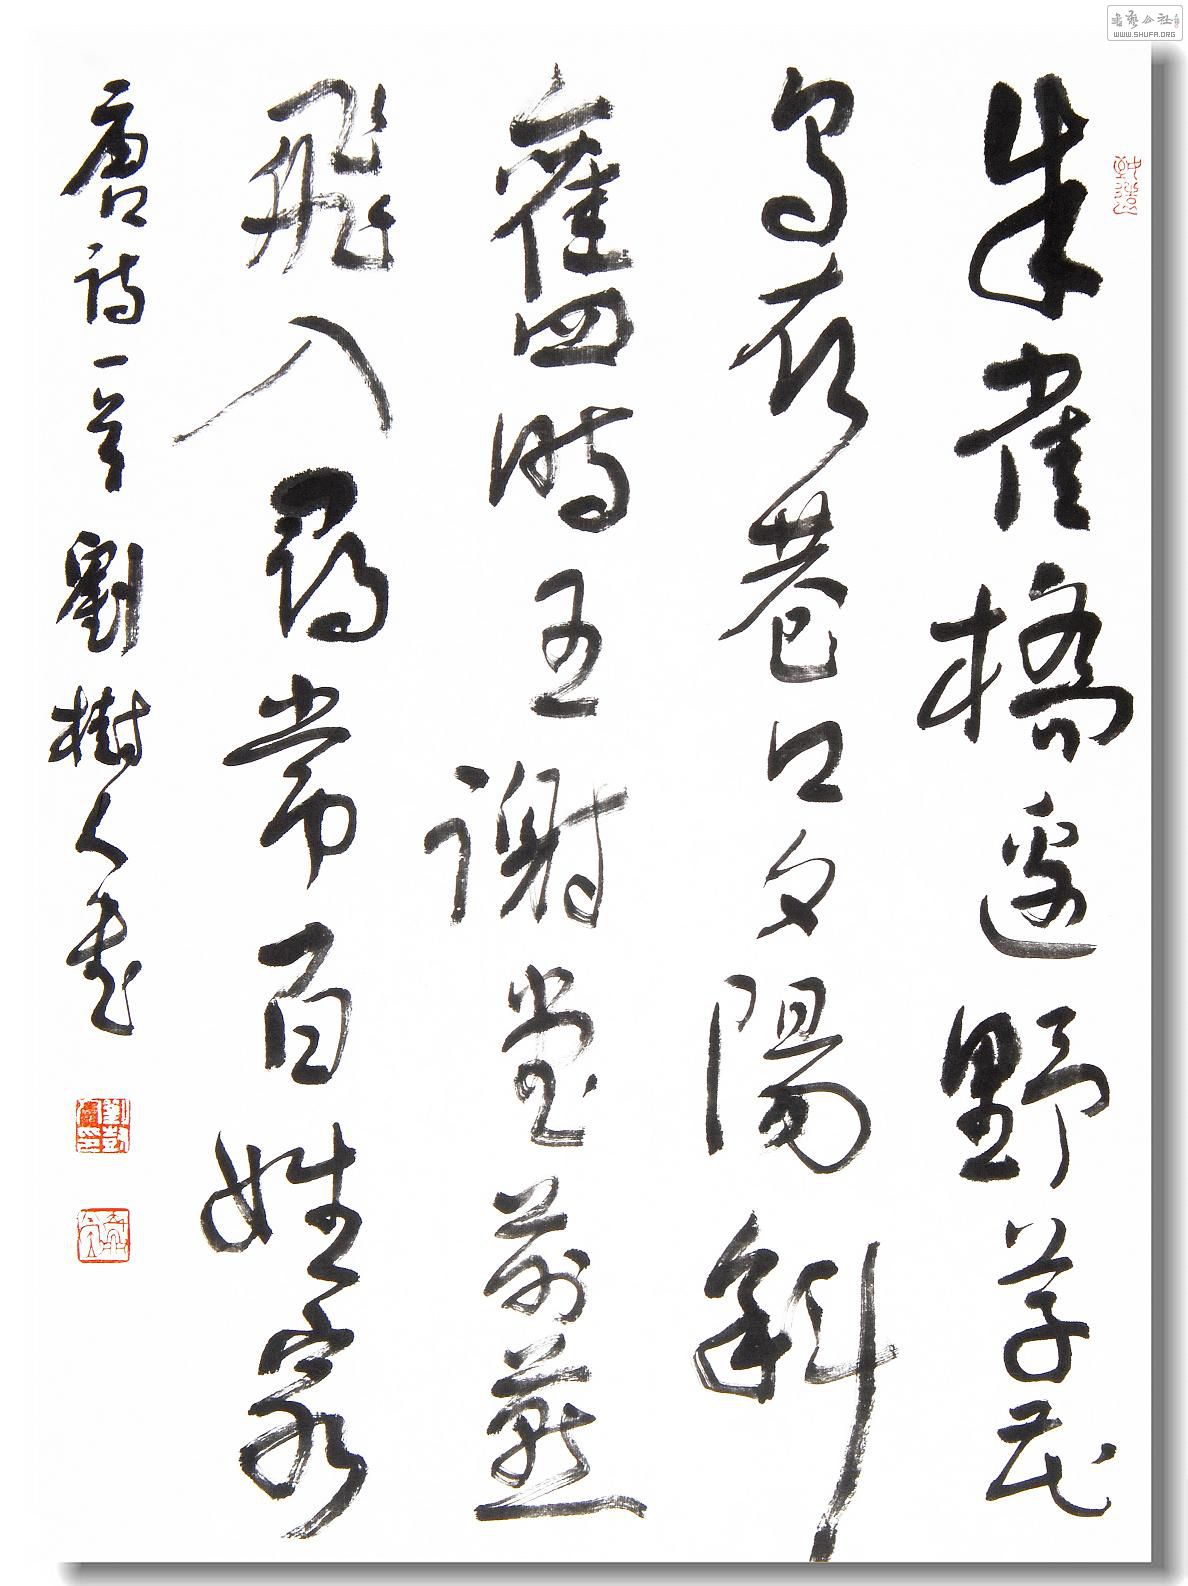 朱雀橋邊野草花
烏衣巷口夕陽斜
舊時王謝堂前燕
飛入尋常百姓家
唐詩一首 劉樹人書
書藝公社
WWW.SHUFA.ORG